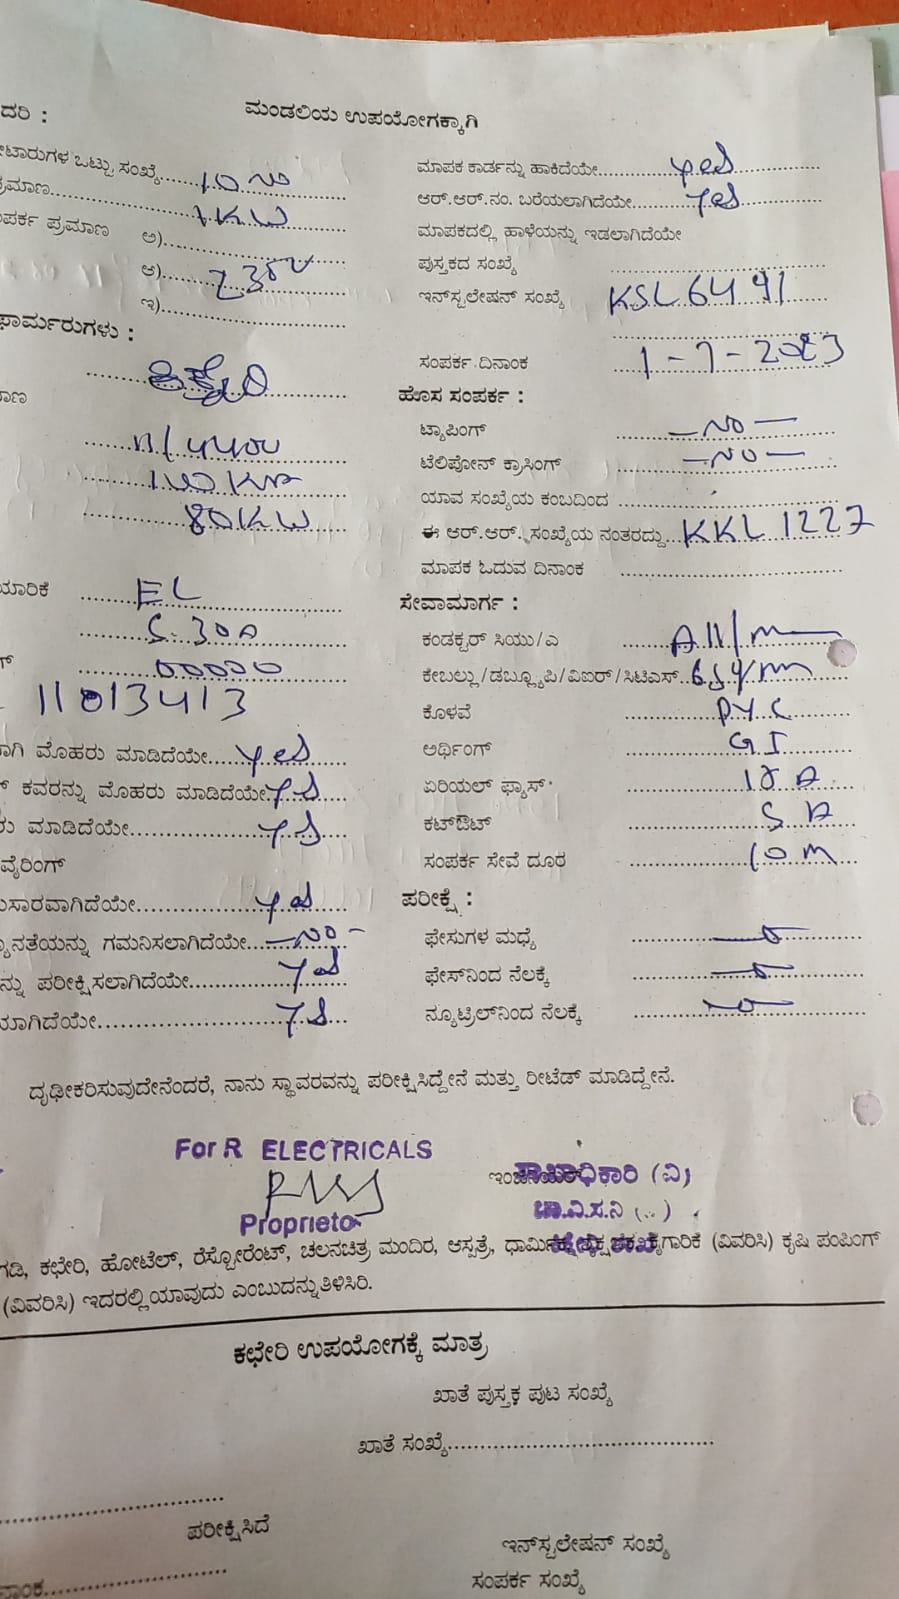 ದರಿ :
ಮಂಡಲಿಯ ಉಪಯೋಗಕ್ಕಾಗಿ
ಟಾರುಗಳ ಒಟ್ಟು ಸಂಖ್ಯೆ......10 No
ಪ್ರಮಾಣ...... 1KW
ಪರ್ಕ ಪ್ರಮಾಣ ಅ)......
ಆ)...... 230V
ಇ)......
ಫಾರ್ಮರುಗಳು :
ಮಾಪಕ ಕಾರ್ಡನ್ನು ಹಾಕಿದೆಯೇ...... yes
ಆರ್.ಆರ್.ನಂ. ಬರೆಯಲಾಗಿದೆಯೇ...... Yes
ಮಾಪಕದಲ್ಲಿ ಹಾಳೆಯನ್ನು ಇಡಲಾಗಿದೆಯೇ
ಪುಸ್ತಕದ ಸಂಖ್ಯೆ ......
ಇನ್‌ಸ್ಟಲೇಷನ್ ಸಂಖ್ಯೆ KSL 6491
ಸಂಪರ್ಕ ದಿನಾಂಕ 1-7-2023
ಹೊಸ ಸಂಪರ್ಕ :
ಟ್ಯಾಪಿಂಗ್ — NO —
ಟೆಲಿಪೋನ್ ಕ್ರಾಸಿಂಗ್ — NO —
ಯಾವ ಸಂಖ್ಯೆಯ ಕಂಬದಿಂದ ......
ಈ ಆರ್.ಆರ್. ಸಂಖ್ಯೆಯ ನಂತರದ್ದು... KKL 1227
ಮಾಪಕ ಓದುವ ದಿನಾಂಕ ......
100 KVA
80 KW
ಯಾರಿಕೆ EL
5-30A
00000
11013413
ಸೇವಾಮಾರ್ಗ :
ಕಂಡಕ್ಟರ್ ಸಿಯು/ಎ
ಕೇಬಲ್ಲು/ಡಬ್ಲ್ಯೂಪಿ/ವಿಐರ್/ಸಿಟಿಎಸ್..
ಕೊಳವೆ PVC
ಅರ್ಥಿಂಗ್ GI
ಏರಿಯಲ್ ಫ್ಯೂಸ್
ಕಟ್‌ಔಟ್
ಸಂಪರ್ಕ ಸೇವೆ ದೂರ 10 m
ಾಗಿ ಮೊಹರು ಮಾಡಿದೆಯೇ.. yes
ಕವರನ್ನು ಮೊಹರು ಮಾಡಿದೆಯೇ Ys
ರು ಮಾಡಿದೆಯೇ...... Ys
ವೈರಿಂಗ್
ಸಾರವಾಗಿದೆಯೇ...... yes
ನತೆಯನ್ನು ಗಮನಿಸಲಾಗಿದೆಯೇ... — NO —
ನ್ನು ಪರೀಕ್ಷಿಸಲಾಗಿದೆಯೇ...... Yes
ಯಾಗಿದೆಯೇ...... Ys
ಪರೀಕ್ಷೆ :
ಫೇಸುಗಳ ಮಧ್ಯೆ
ಫೇಸ್‌ನಿಂದ ನೆಲಕ್ಕೆ
ನ್ಯೂಟ್ರಲ್‌ನಿಂದ ನೆಲಕ್ಕೆ
ದೃಢೀಕರಿಸುವುದೇನೆಂದರೆ, ನಾನು ಸ್ಥಾವರವನ್ನು ಪರೀಕ್ಷಿಸಿದ್ದೇನೆ ಮತ್ತು ರೀಟೆಡ್ ಮಾಡಿದ್ದೇನೆ.
For R ELECTRICALS
Proprietor
ಶಾಖಾಧಿಕಾರಿ (ವಿ)
ಚಾ.ವಿ.ಸ.ನಿ (..)
ಗಡಿ, ಕಛೇರಿ, ಹೋಟೆಲ್, ರೆಸ್ಟೋರೆಂಟ್, ಚಲನಚಿತ್ರ ಮಂದಿರ, ಆಸ್ಪತ್ರೆ, ಕೈಗಾರಿಕೆ (ವಿವರಿಸಿ) ಕೃಷಿ ಪಂಪಿಂಗ್
(ವಿವರಿಸಿ) ಇದರಲ್ಲಿ ಯಾವುದು ಎಂಬುದನ್ನು ತಿಳಿಸಿರಿ.
ಕಛೇರಿ ಉಪಯೋಗಕ್ಕೆ ಮಾತ್ರ
ಖಾತೆ ಪುಸ್ತಕ ಪುಟ ಸಂಖ್ಯೆ
ಖಾತೆ ಸಂಖ್ಯೆ......
ಪರೀಕ್ಷಿಸಿದೆ
ಇನ್‌ಸ್ಟಲೇಷನ್ ಸಂಖ್ಯೆ
ನಾಂಕ......
ಸಂಪರ್ಕ ಸಂಖ್ಯೆ